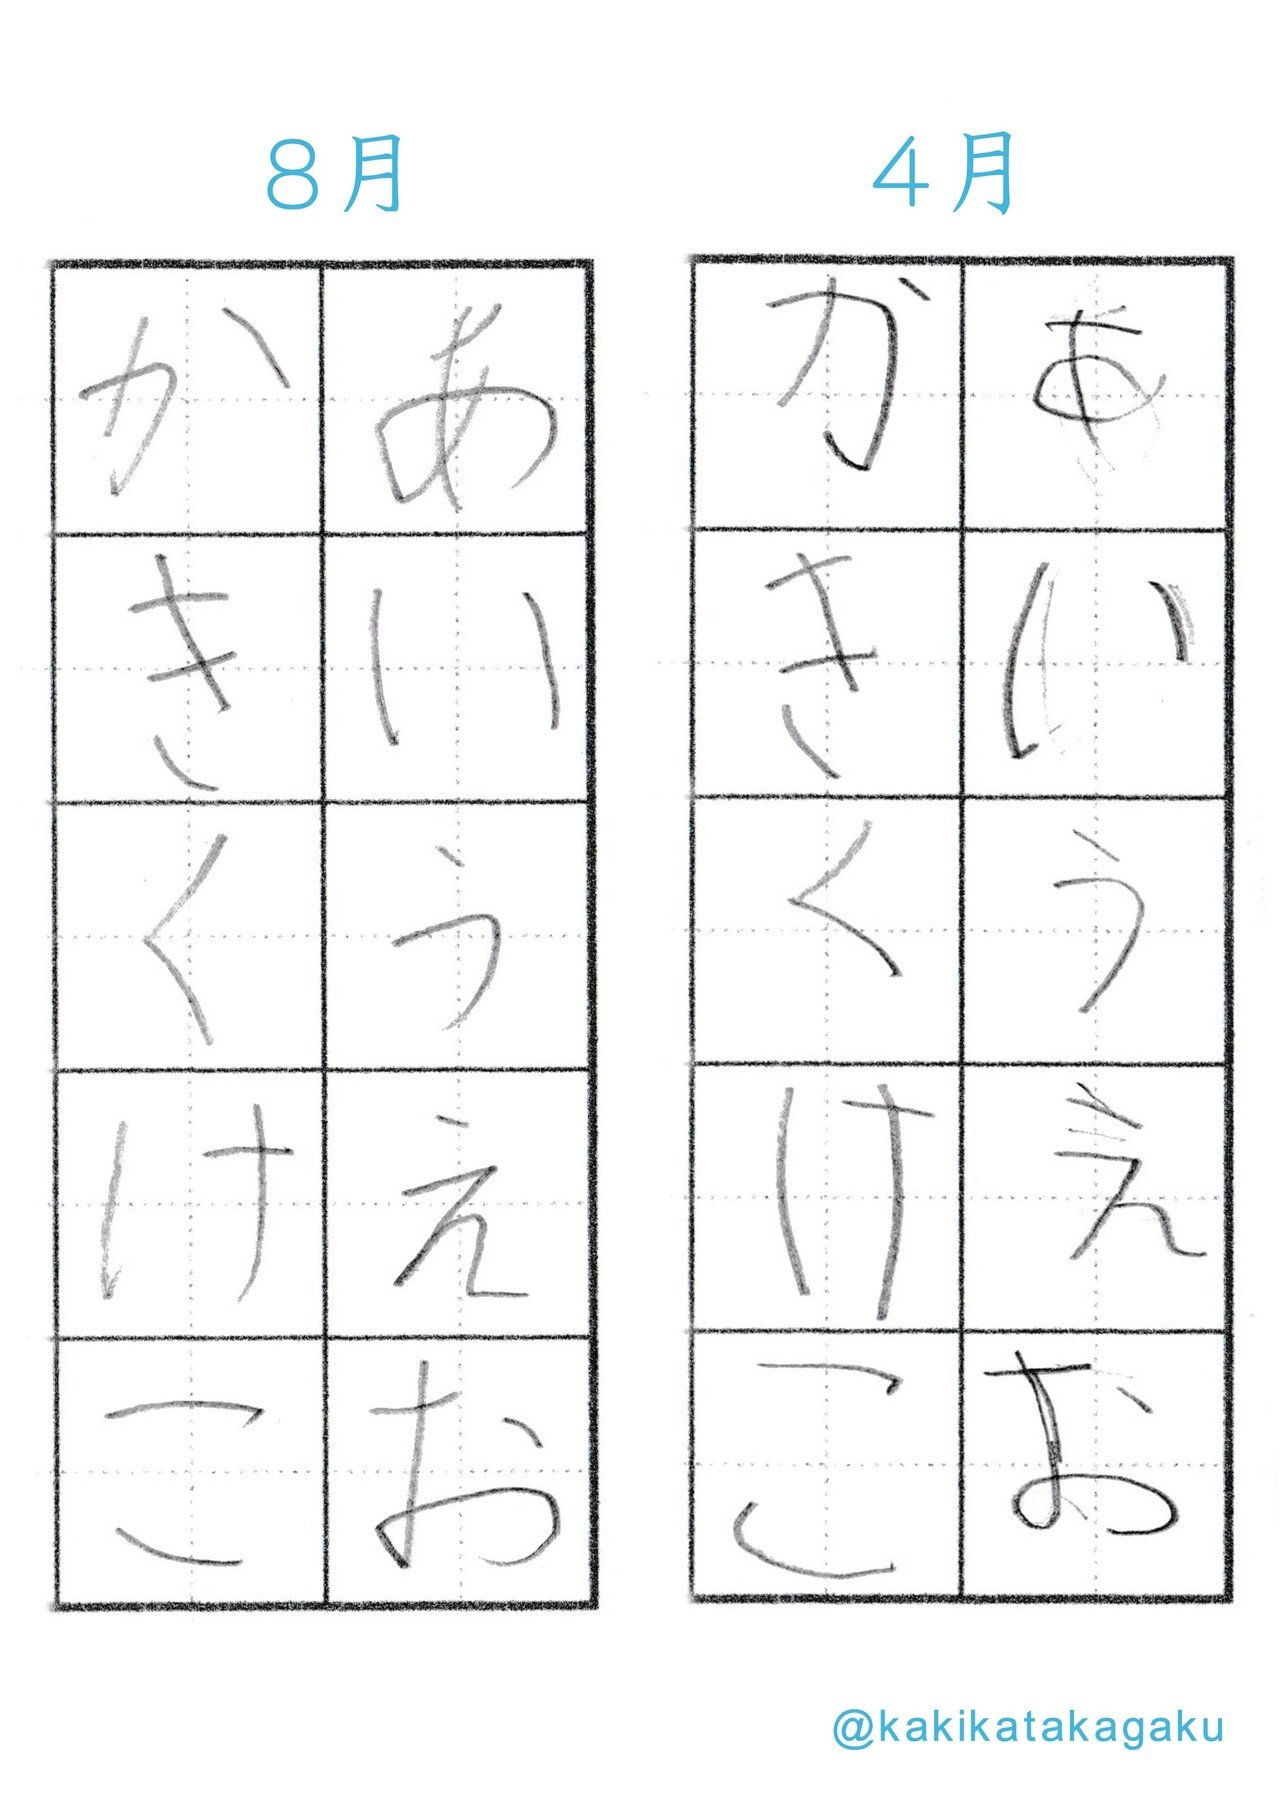 4月
あいうえお
かきくけこ
8月
あいうえお
かきくけこ
@kakikatakagaku